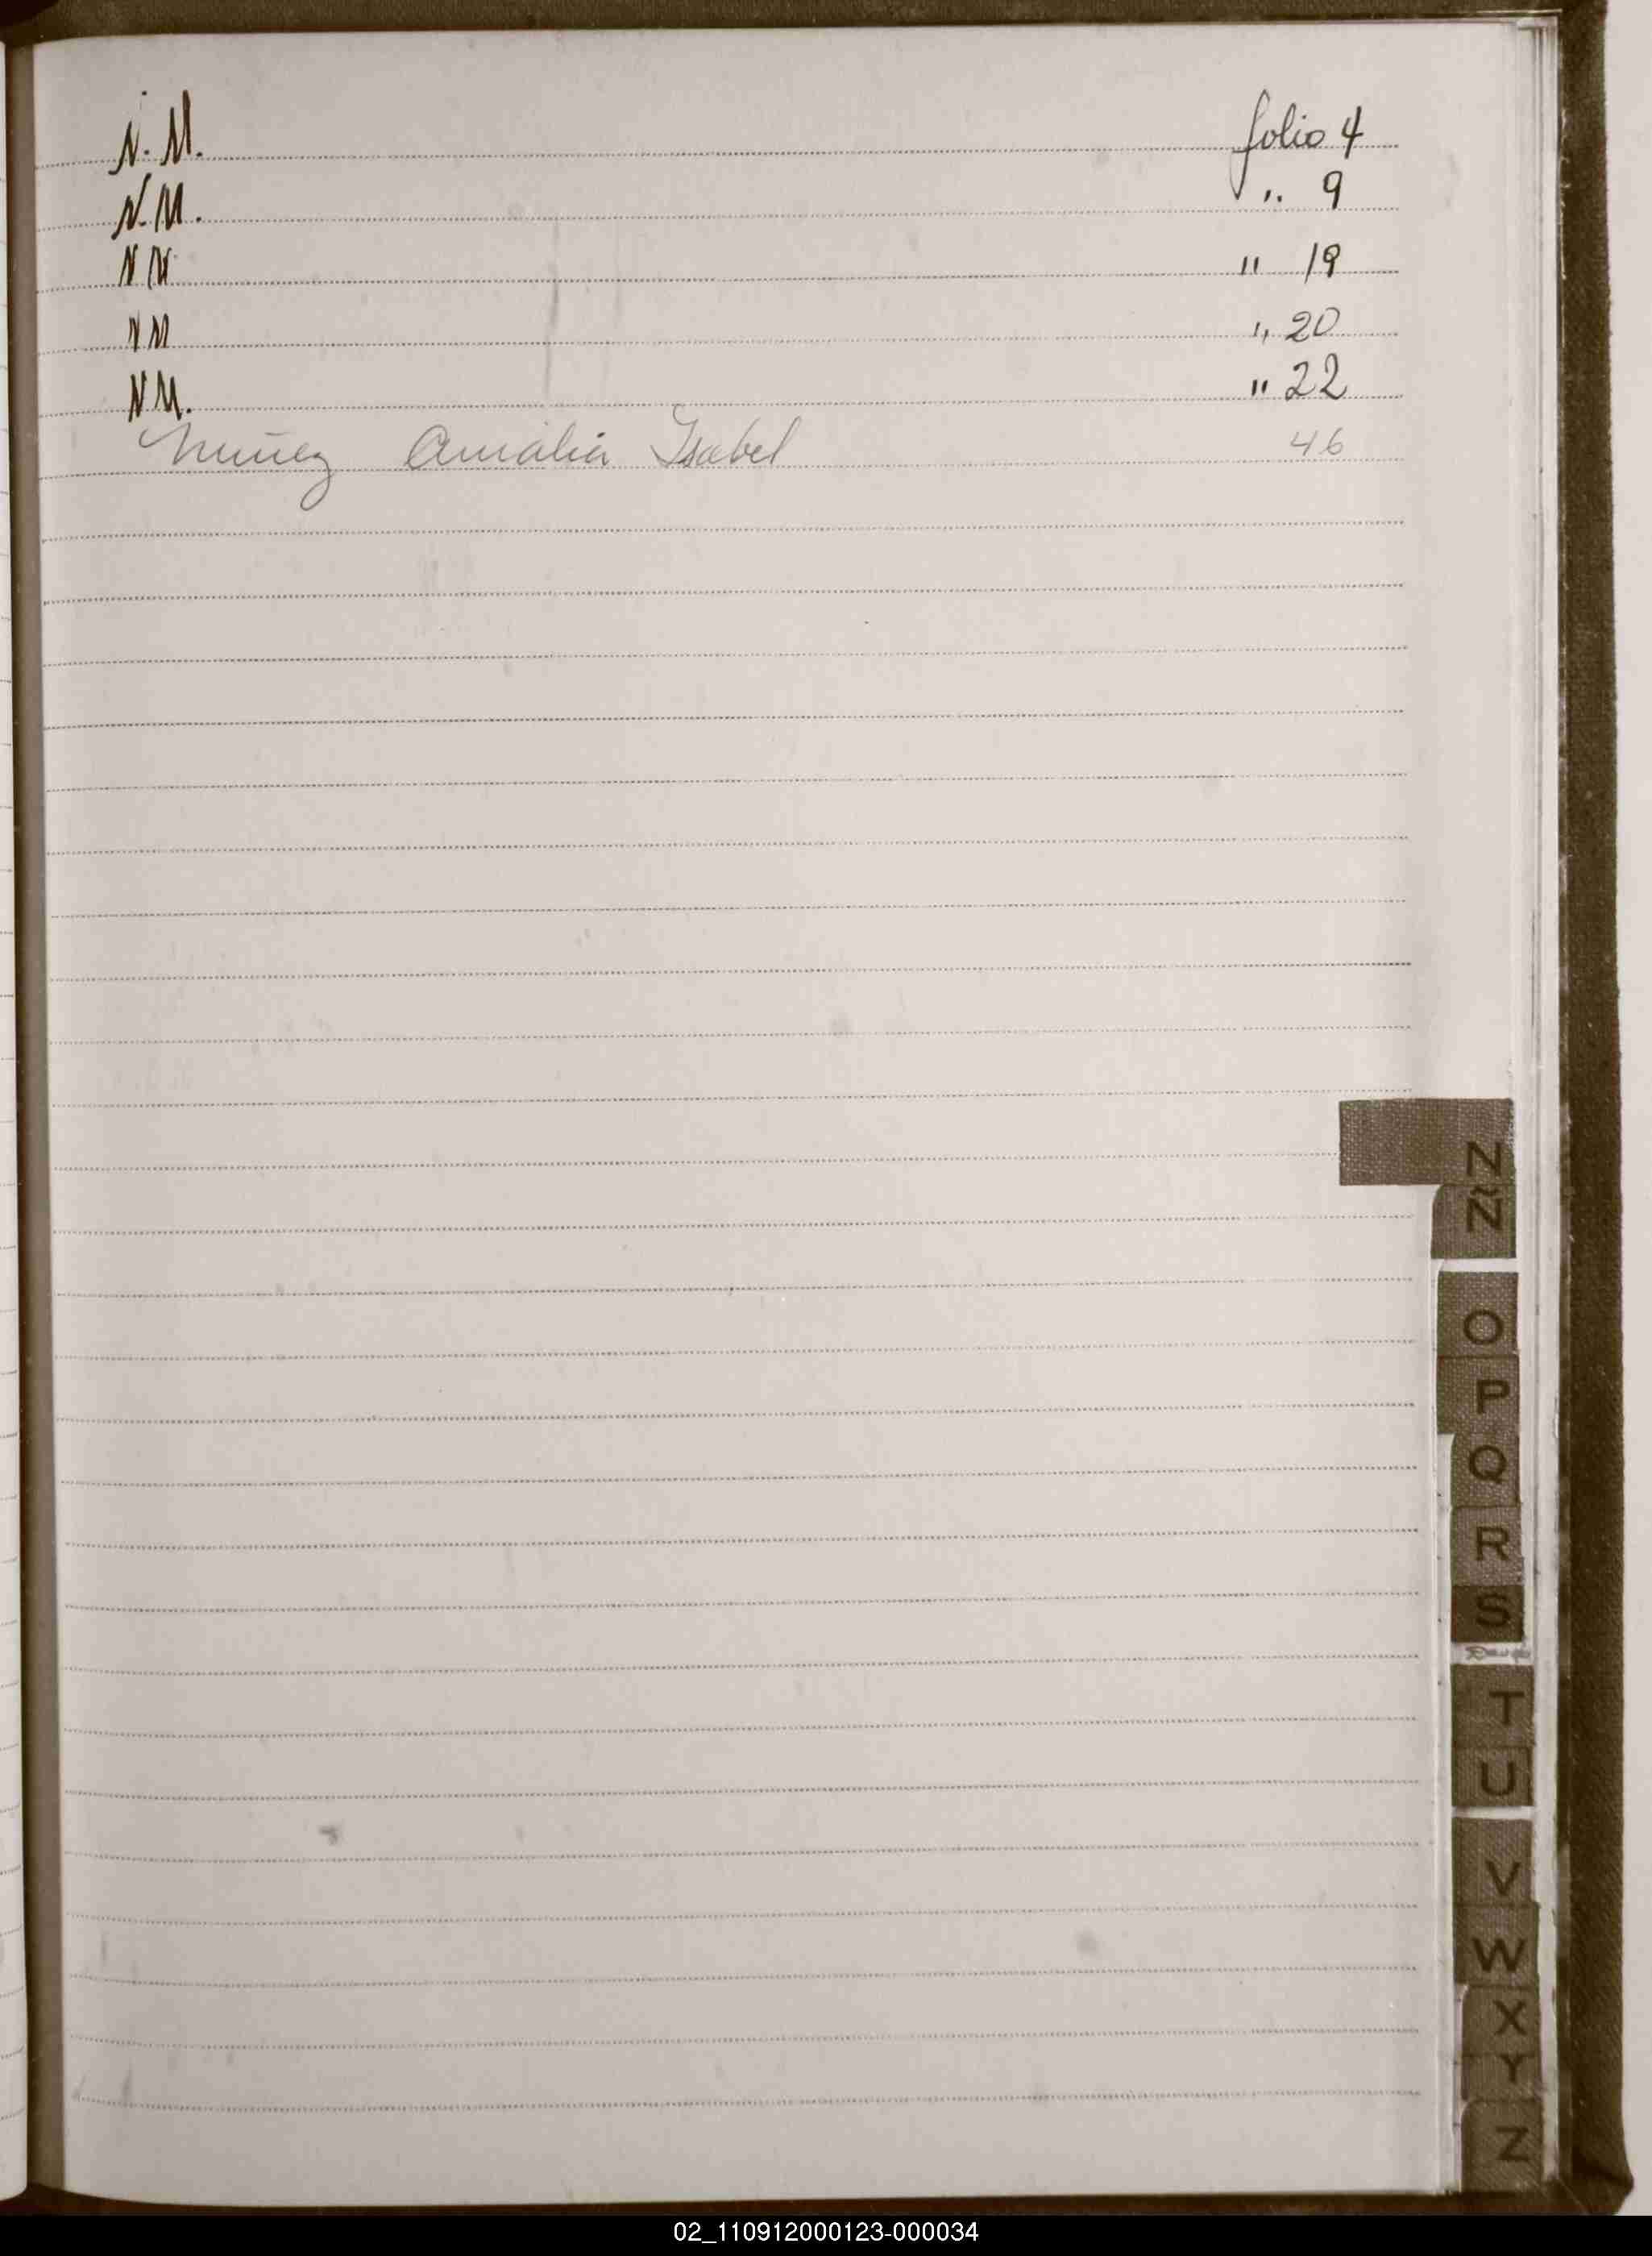 N. M. folio 4
N. M. " 9
N N " 19
N M " 20
N M. " 22
Nuñez Amalia Isabel 46
N
Ñ
O
P
Q
R
S
T
U
V
W
X
Y
Z
02_110912000123-000034